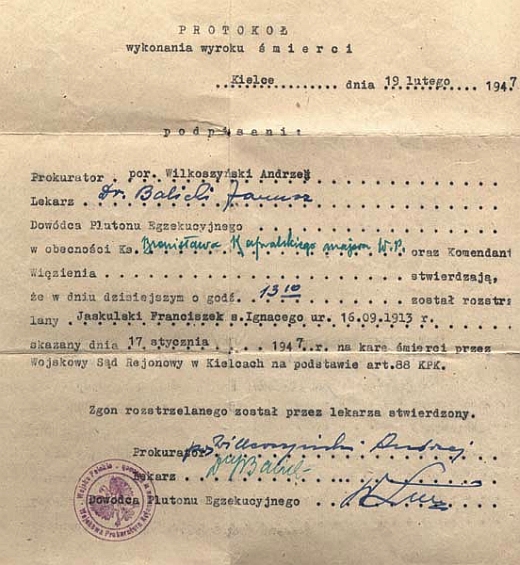 PROTOKOŁ
wykonania wyroku śmierci
Kielce dnia 19 lutego 1947
podpisani:
Prokurator por. Wilkoszyński Andrzej
Lekarz Dr. Balicki Janusz
Dowódca Plutonu Egzekucyjnego
w obecności Ks. Bronisława Kapwalskiego majora W.P. oraz Komendant
Więzienia stwierdzają,
że w dniu dzisiejszym o godź. 13 10 został rozstrz
lany Jaskulski Franciszek s. Ignacego ur. 16.09.1913 r.
skazany dnia 17 stycznia 1947 r. na karę śmierci przez
Wojskowy Sąd Rejonowy w Kielcach na podstawie art.88 KPK.
Zgon rozstrzelanego został przez lekarza stwierdzony.
Prokurator por Wilkoszyński Andrzej
Lekarz
Dowódca Plutonu Egzekucyjnego